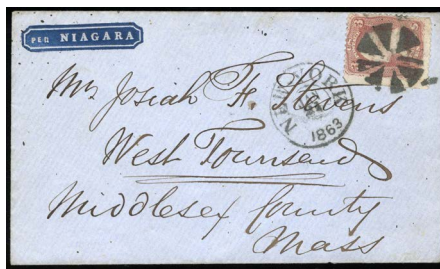 PER NIAGARA
NEW YORK
1863
Mr Josiah F. Stevens
West Townsend
Middlesex County
Mass